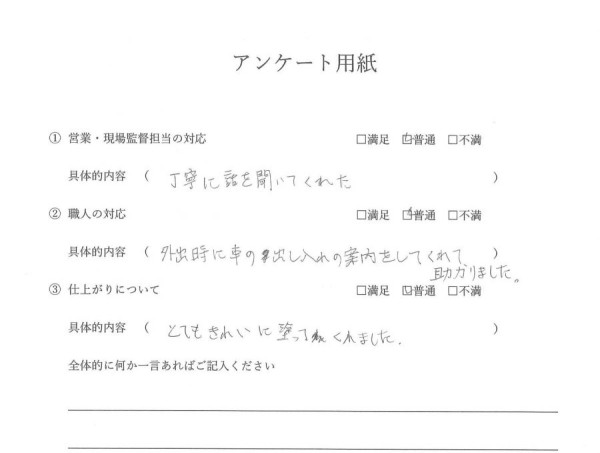 アンケート用紙
① 営業・現場監督担当の対応 □満足 ☑普通 □不満
具体的内容 ( 丁寧に話を聞いてくれた )
② 職人の対応 □満足 ☑普通 □不満
具体的内容 ( 外出時に車の出し入れの案内をしてくれて )
助かりました。
③ 仕上がりについて □満足 ☑普通 □不満
具体的内容 ( とてもきれいに塗ってくれました. )
全体的に何か一言あればご記入ください